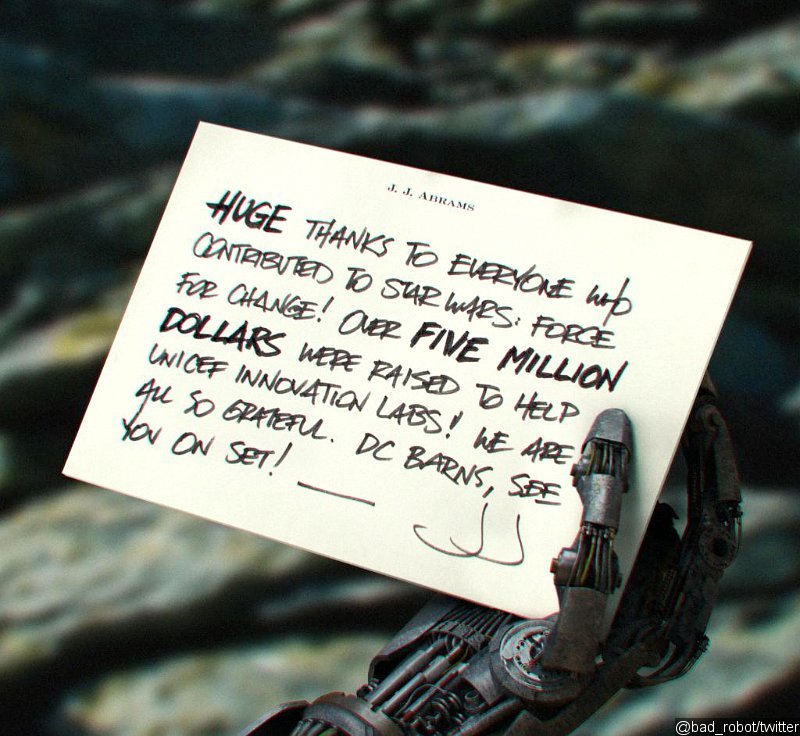 J. J. ABRAMS
HUGE THANKS TO EVERYONE WHO
CONTRIBUTED TO STAR WARS: FORCE
FOR CHANGE! OVER FIVE MILLION
DOLLARS WERE RAISED TO HELP
UNICEF INNOVATION LABS! WE ARE
ALL SO GRATEFUL. DC BARNS, SEE
YOU ON SET! —
JJ
@bad_robot/twitter